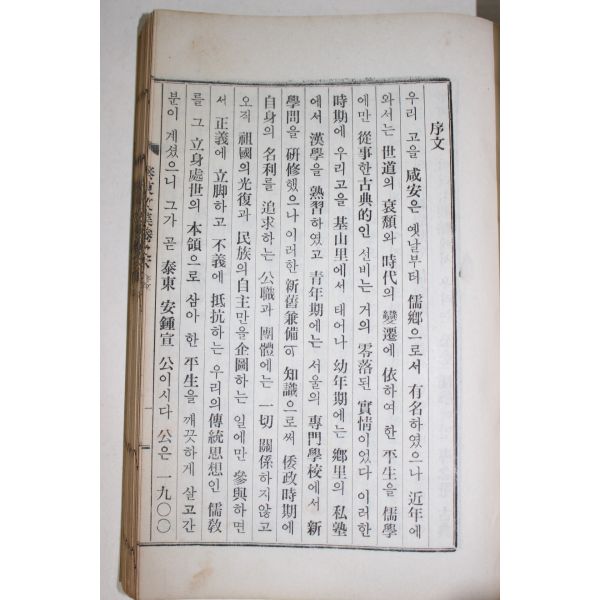 序文
우리 고을 咸安은 옛날부터 儒鄕으로서 有名하였으나 近年에
와서는 世道의 衰頹와 時代의 變遷에 依하여 한 平生을 儒學
에만 從事한 古典的인 선비는 거의 零落된 實情이었다 이러한
時期에 우리 고을 基山里에서 태어나 幼年期에는 鄕里의 私塾
에서 漢學을 熟習하였고 靑年期에는 서울의 專門學校에서 新
學問을 硏修했으나 이러한 新舊兼備의 知識으로써 倭政時期에
自身의 名利를 追求하는 公職과 團體에는 一切 關係하지않고
오직 祖國의 光復과 民族의 自主만을 企圖하는 일에만 參與하면
서 正義에 立脚하고 不義에 抵抗하는 우리의 傳統思想인 儒敎
를 그 立身處世의 本領으로 삼아 한 平生을 깨끗하게 살고간
분이 계셨으니 그가 곧 泰東 安鍾宣 公이시다 公은 一九〇〇
泰東文集卷之六 序文
一